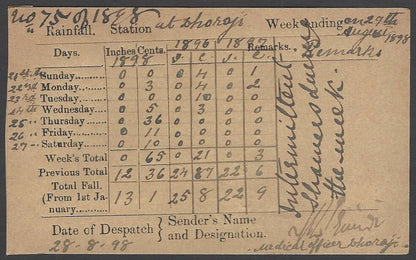 No 75 of 1898
Rainfall. Station at Dhoraji Week ending on 27th August 1898
Days. Inches Cents. 1896 1897 Remarks. Remarks
1898 I. C. I. C.
21st to Sunday 0 0 0 4 0 1
22nd Monday 0 3 0 4 0 2
23rd Tuesday 0 0 10 0 0
24th Wednesday 0 5 0 3 0
25 " Thursday 0 36 0 0 0
26 " Friday 0 11 0 0 0
27 " Saturday 0 10 0 0 0
Week's Total 0 65 0 21 0 3
Previous Total 12 36 24 87 22 6
Total Fall. (From 1st January 13 1 25 8 22 9
Intermittent
Showers during
the week.
Date of Despatch } Sender's Name
28-8-98 and Designation.
Medical officer Dhoraji